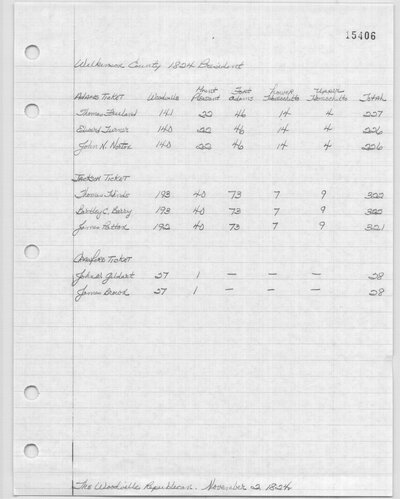 15406
Wilkinson County 1824 President
Adams Ticket Woodville Mount Pleasant Fort Adams Lower Homochitto Upper Homochitto Total
Thomas 141 22 46 14 4 227
Edward Turner 140 22 46 14 4 226
John N. 140 22 46 14 4 226
Jackson Ticket
Thomas Hinds 193 40 73 7 9 322
Bartley C. Barry 193 40 73 7 9 322
James Patton 192 40 73 7 9 321
Crawford Ticket
John H. Gildart 27 1 — — — 28
James Brown 27 1 — — — 28
The Woodville Republican. November 2 1824